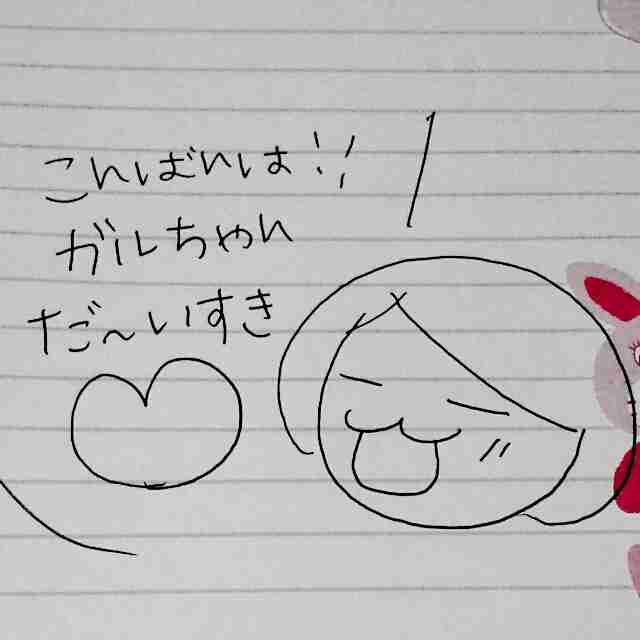 こんばんは!!
ガルちゃん
だ~いすき